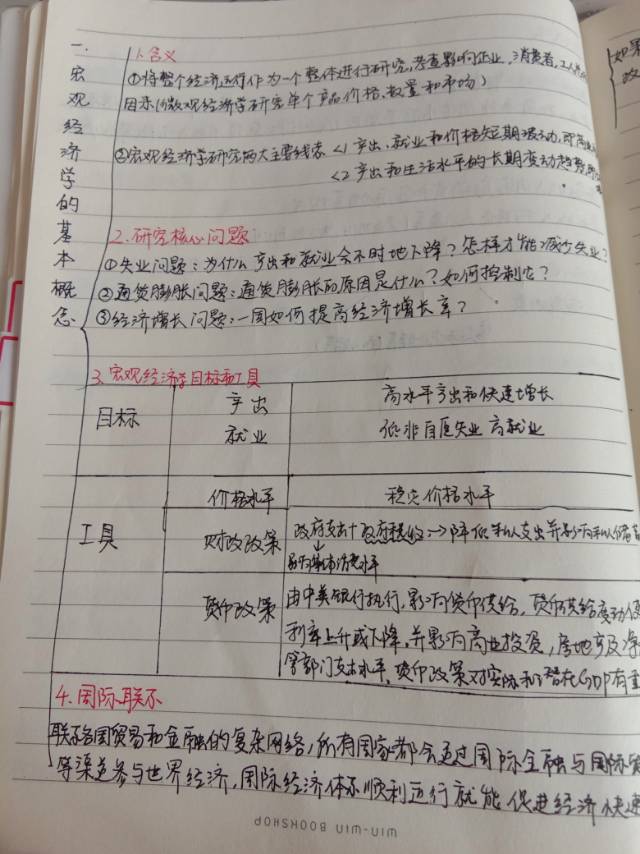 一.宏观经济学的基本概念
1.含义
①将整个经济运作作为一个整体进行研究,考查影响企业、消费者、工人
因素(微观经济学研究单个产品价格、数量和市场)
②宏观经济学研究两大主要线索 <1 产出、就业和价格短期波动,即
<2 产出和生活水平的长期变动趋势
2.研究核心问题
①失业问题:为什么产出和就业会不时地下降?怎样才能减少失业?
②通货膨胀问题:通货膨胀的原因是什么?如何控制它?
③经济增长问题:一国如何提高经济增长率?
3.宏观经济学目标和工具
目标 产出 高水平产出和快速增长
就业 低非自愿失业 高就业
价格水平 稳定价格水平
工具 财政政策 政府支出+政府税收→降低私人支出并影响私人储蓄
影响集体消费水平
货币政策 由中央银行执行,影响货币供给,货币供给变动使
利率上升或下降,并影响商业投资,房地产及净
等部门支出水平,货币政策对实际和潜在GDP有重
4.国际联系
联系各国贸易和金融的复杂网络,所有国家都会通过国际金融与国际贸
等渠道参与世界经济,国际经济体系顺利运行就能促进经济快速
WIN-WIN BOOKSHOP
如果
改